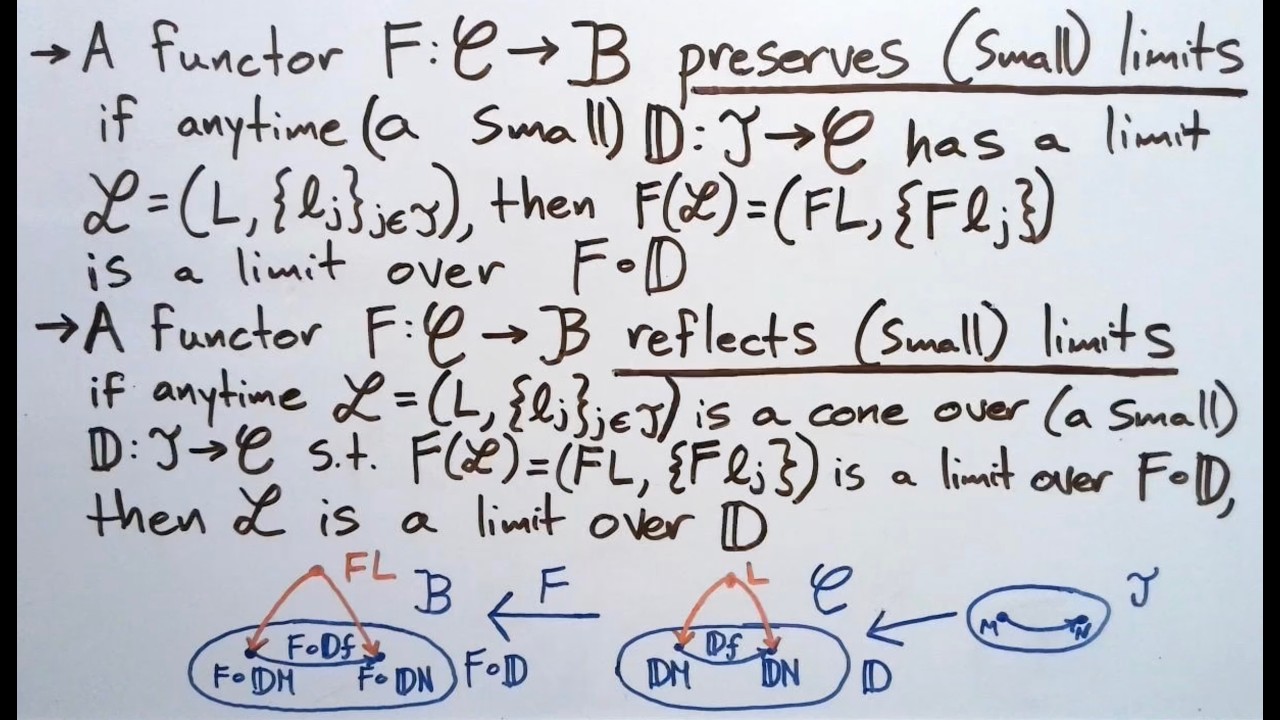 → A functor F: 𝒞 → B preserves (small) limits
if anytime (a small) 𝔻: 𝒥 → 𝒞 has a limit
ℒ = (L, {lⱼ}ⱼ∈𝒥), then F(ℒ) = (FL, {Flⱼ})
is a limit over F∘𝔻
→ A functor F: 𝒞 → B reflects (small) limits
if anytime ℒ = (L, {lⱼ}ⱼ∈𝒥) is a cone over (a small)
𝔻: 𝒥 → 𝒞 s.t. F(ℒ) = (FL, {Flⱼ}) is a limit over F∘𝔻,
then ℒ is a limit over 𝔻
FL B F L 𝒞 𝒥
M N
F∘𝔻f 𝔻f
F∘𝔻M F∘𝔻N F∘𝔻 𝔻M 𝔻N 𝔻